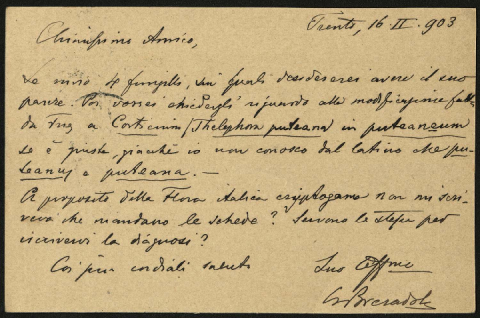 Trento, 16.II.903
Chiarissimo Amico,
Le invio 4 funghetti, sui quali desidererei avere il suo
parere. Poi vorrei chiedergli riguardo alla modificazione fatta
da Fries a Corticium (Thelephora puteana in puteaneum
se è giusta giacchè io non conosco dal latino che pu-
teanus e puteana. —
A proposito della Flora italica cryptogama non mi scri-
veva che mandano le schede? Servono le stesse per
iscrivervi la diagnosi?
Coi più cordiali saluti
Suo affmo
G. Bresadola